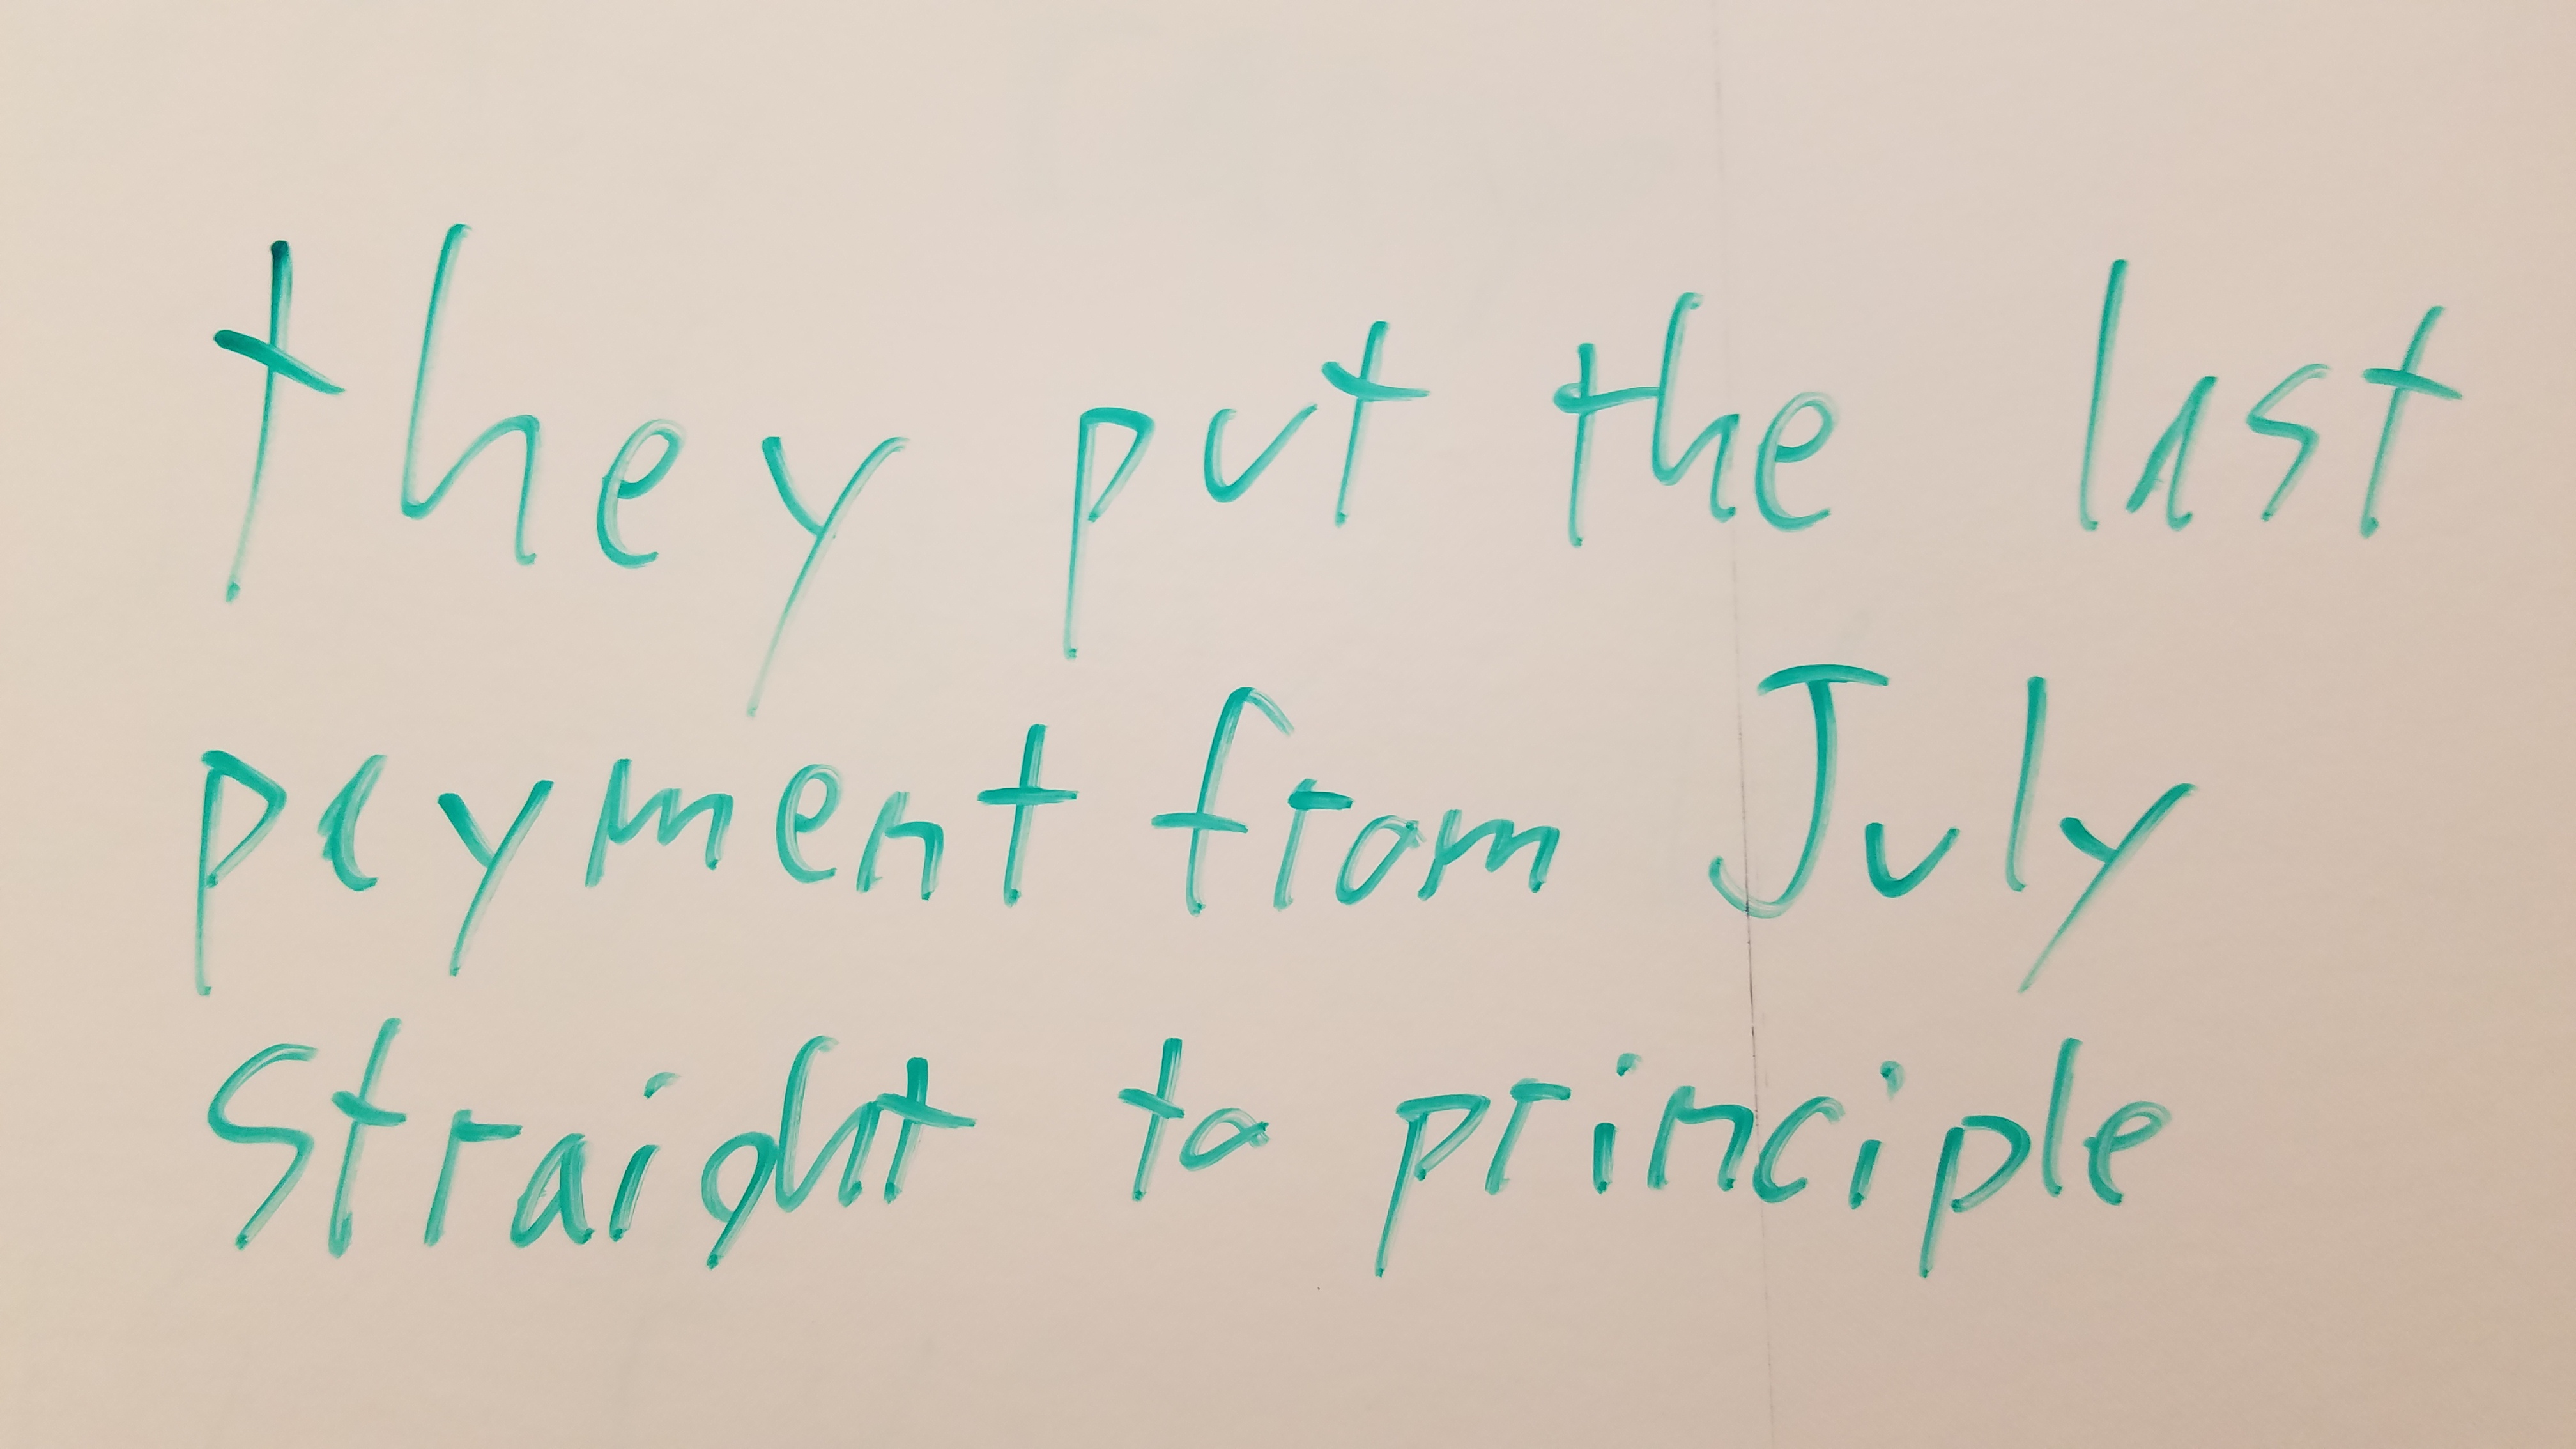 they put the last
payment from July
straight to principle